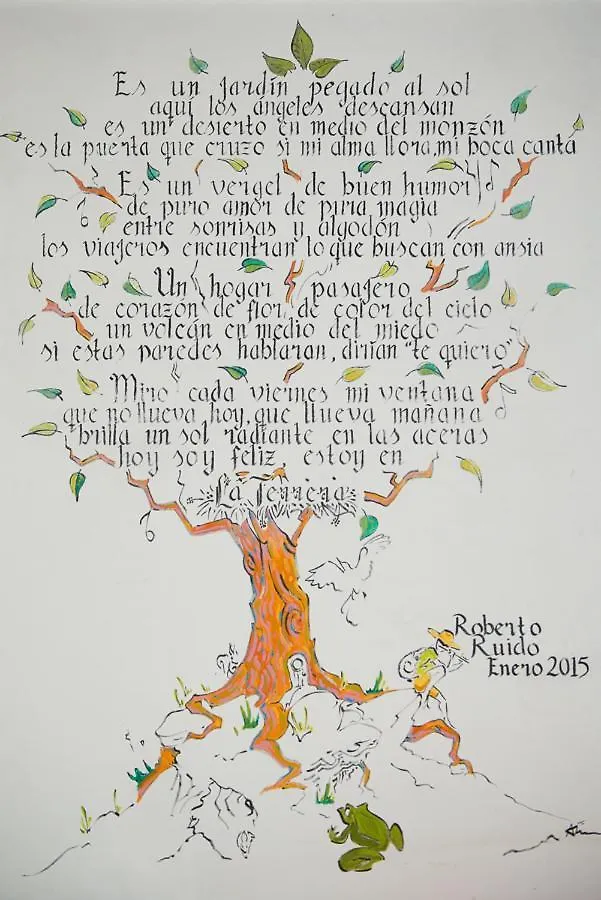 Es un jardín pegado al sol
aquí los ángeles descansan
es un desierto en medio del monzón
es la puerta que cruzo si mi alma llora, mi boca canta
Es un vergel de buen humor
de puro amor de pura magia
entre sonrisas y algodón
los viajeros encuentran lo que buscan con ansia
Un hogar pasajero
de corazón de flor, de color del cielo
un volcán en medio del miedo
si estas paredes hablaran, dirían "te quiero"
Miro cada viernes mi ventana
que no llueva hoy, que llueva mañana
brilla un sol radiante en las aceras
hoy soy feliz estoy en
La
Roberto
Ruido
Enero 2015